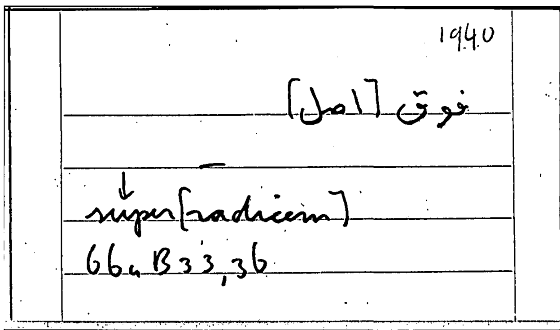 1940
فوق [اصل]
super[radicem]
66a B33,36